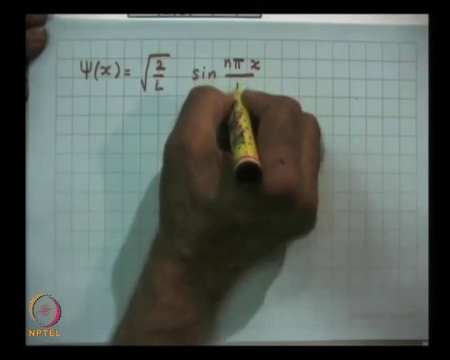 Ψ(x) = √(2/L) sin nπ x /
NPTEL